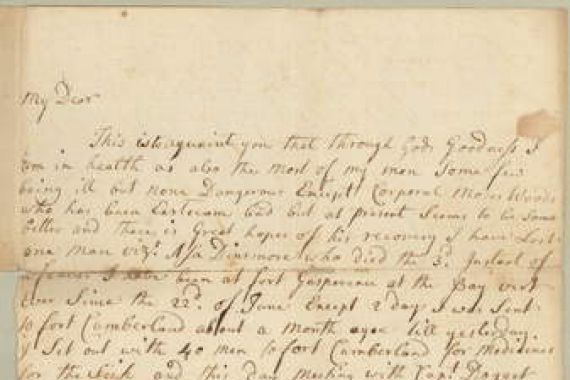 My Dear
This is to aquaint you that through Gods Goodness I
am in health as also the most of my men Some few
being ill but none Dangerous Except Corporal Moses Woods
who has been Extream bad but at present Seems to be Some
better and there is Great hopes of his recovery I have Lost
one man viz. Asa Dinsmore who died the 3d. Instant of
a I have been at fort Gaspereau at the Bay vert
Ever Since the 22d. of June Except 2 days I was Sent
to fort Cumberland about a month agoe till yesterday
I Set out with 40 men to fort Cumberland for medicines
for the Sick and this day meeting with Capt. Dogget